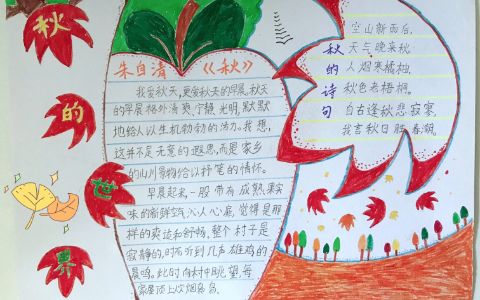 秋
的
世
界
朱自清 《秋》
我爱秋天,更爱秋天的早晨,秋天
的早晨格外清爽、宁静、光明,默默
地给人以生机勃勃的活力。我想,
这并不是无意的遐思,而是家乡
的山川景物给以抻笔的情怀。
早晨起来,一股带有成熟果实
味的新鲜空气沁人心扉,觉得是那
样的爽适和舒畅。整个村子是
寂静的,时而听到几声雄鸡的
晨鸣。此时向村中眺望,每
家屋顶上炊烟袅袅
秋的诗句
空山新雨后,
天气晚来秋
人烟寒橘柚,
秋色老梧桐。
自古逢秋悲寂寥,
我言秋日胜春朝